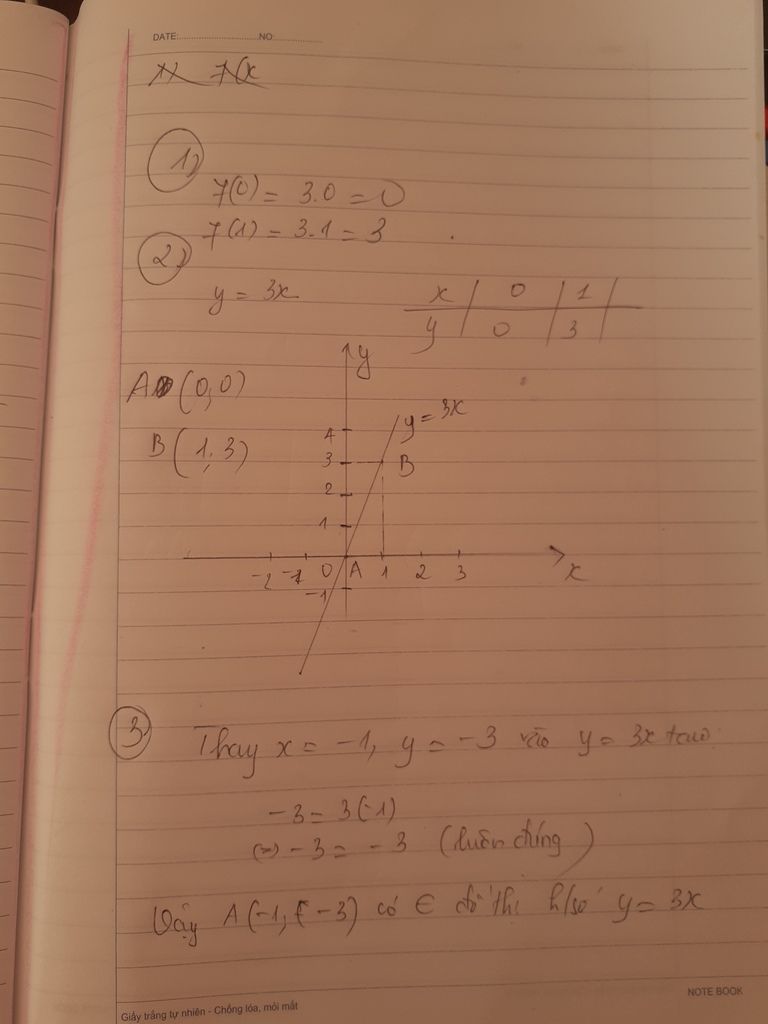 DATE:........................NO:....................
1)
7(0) = 3.0 = 0
7(1) = 3.1 = 3
2)
y = 3x
x | 0 | 1 |
y | 0 | 3 |
y
A (0,0)
B (1,3)
y = 3x
4
3 B
2
1
-2 -1 0 A 1 2 3 x
-1
3
Thay x = -1, y = -3 vào y = 3x
-3 = 3(-1)
(=) -3 = -3 (luôn đúng)
Vậy A(-1, -3) có ∈ đồ thị h/số y = 3x
NOTE BOOK
Giấy trắng tự nhiên - Chống lóa, mỏi mắt